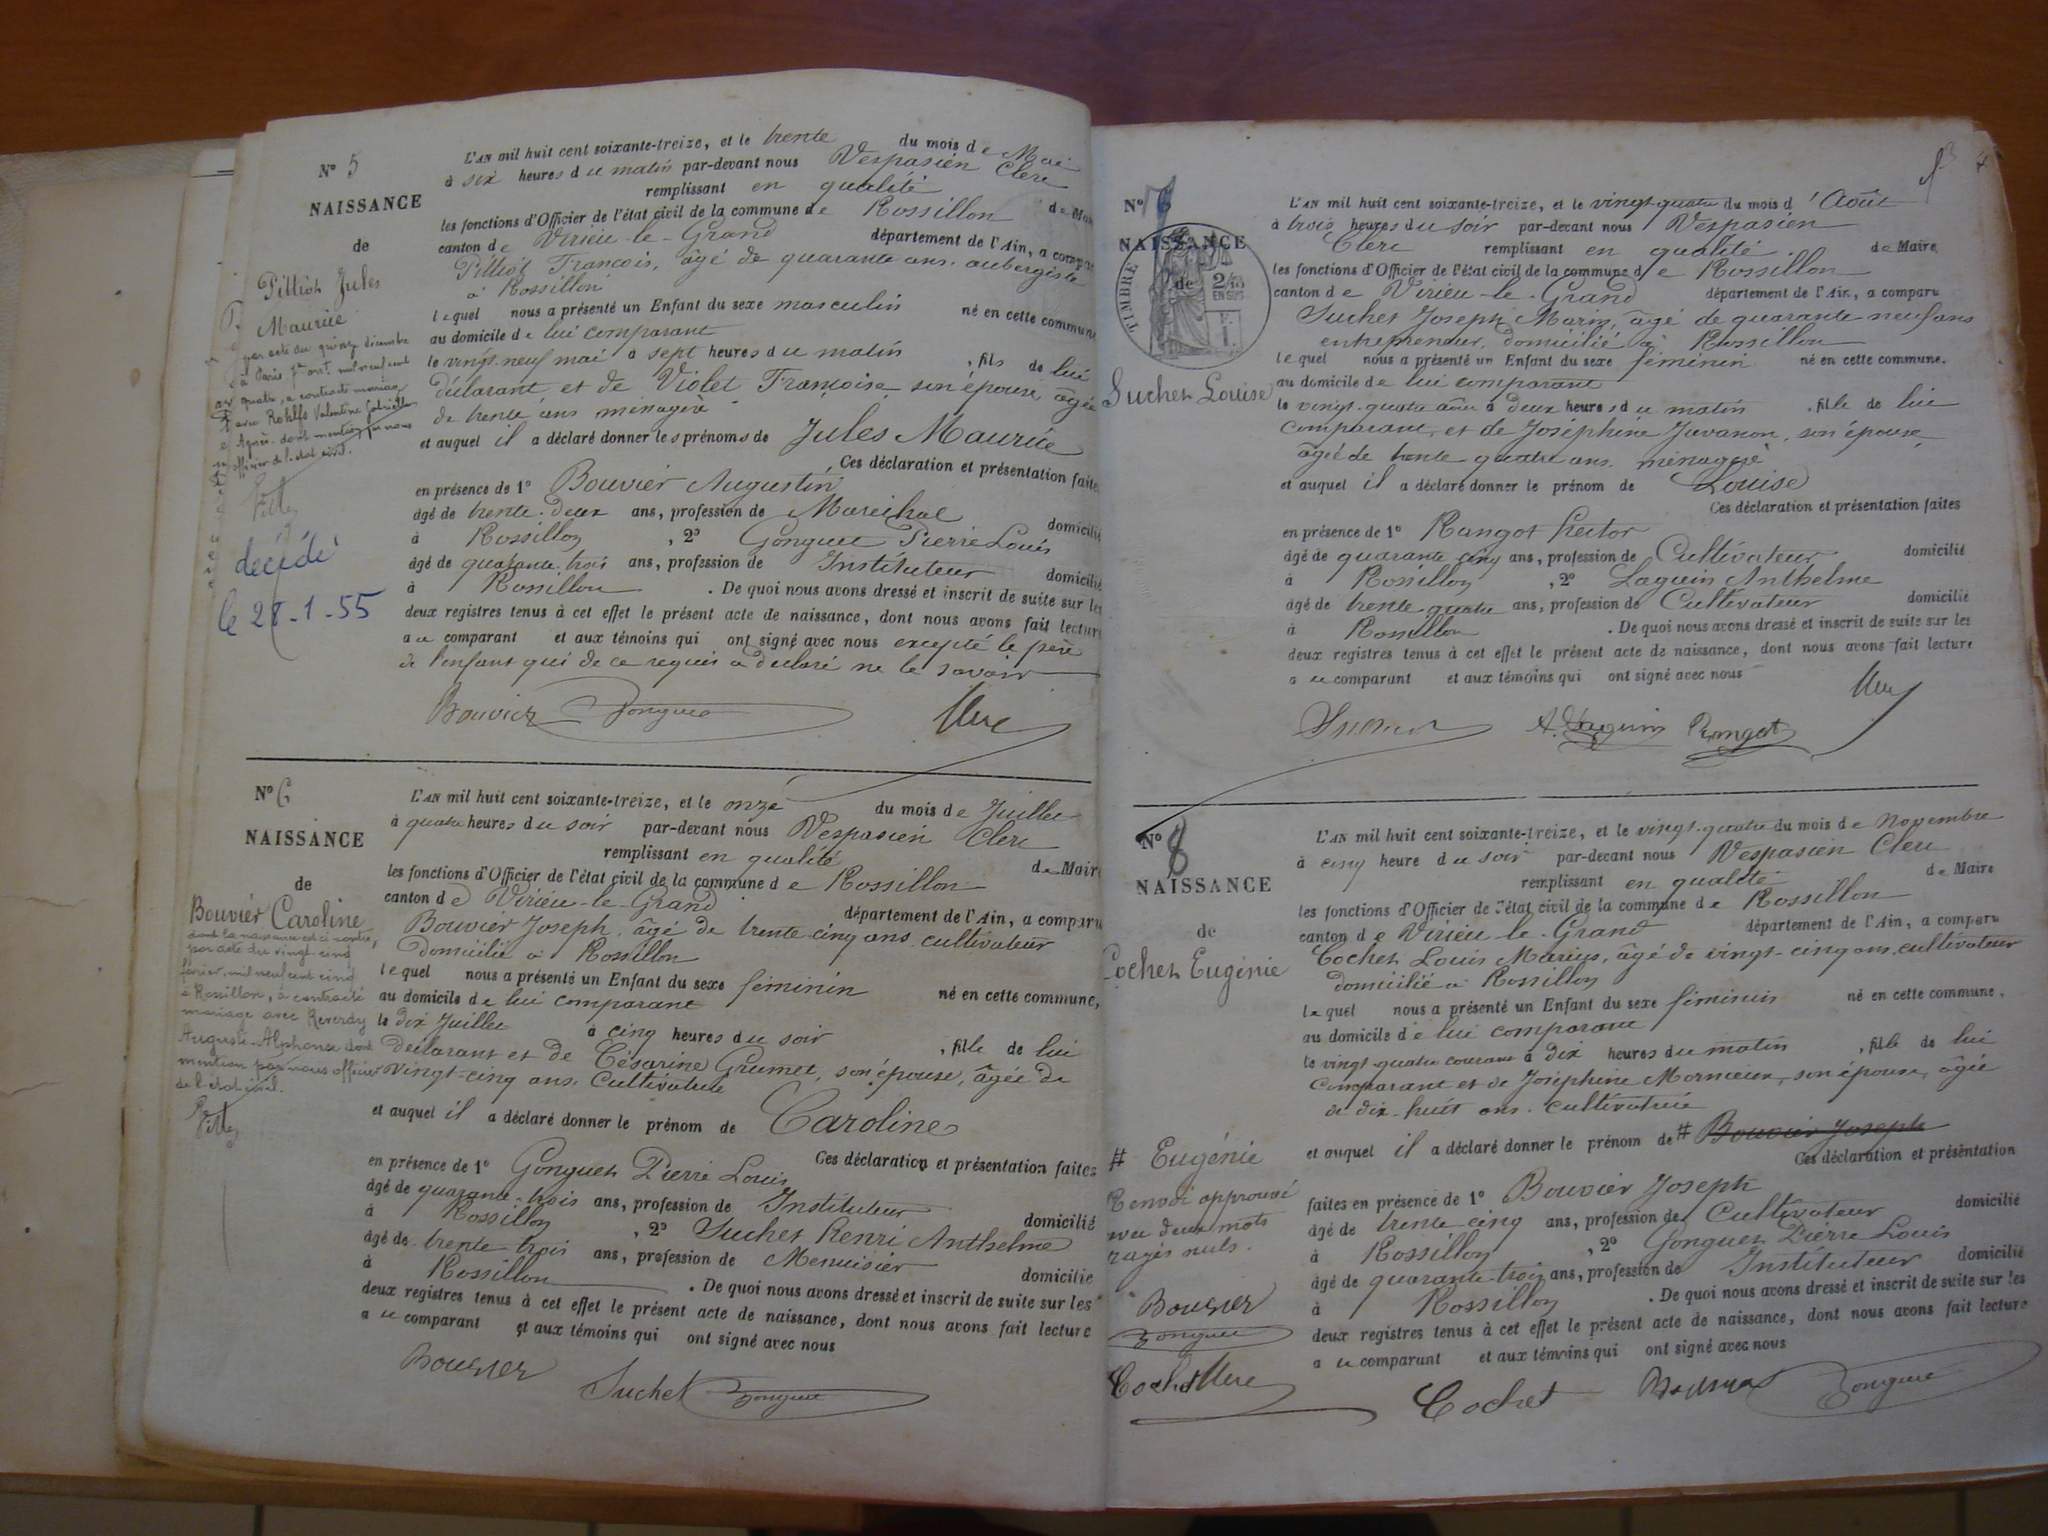 N° 5
NAISSANCE
de
Pilliot Jules
Maurice
par acte du quinze décembre
à Paris 1er arrt mil neuf cent
quatre, a contracté mariage
avec Rohlfs Valentine Gabrielle
Agnès dont mention par nous
officier de l'état civil.
décédé
le 28-1-55
L'AN mil huit cent soixante-treize, et le trente du mois de Mai
à six heures du matin par-devant nous Vespasien Clerc
remplissant en qualité de Maire
les fonctions d'Officier de l'état civil de la commune de Rossillon
canton de Virieu-le-Grand département de l'Ain, a comparu
Pilliot François, âgé de quarante ans, aubergiste
à Rossillon
lequel nous a présenté un Enfant du sexe masculin né en cette commune
au domicile de lui comparant
le vingt-neuf mai à sept heures du matin, fils de lui
déclarant et de Violet Françoise son épouse âgée
de trente ans ménagère
et auquel il a déclaré donner les prénoms de Jules Maurice
Ces déclaration et présentation faites
en présence de 1° Bouvier Augustin
âgé de trente-deux ans, profession de Maréchal domicilié
à Rossillon, 2° Gonguet Pierre Louis
âgé de quarante-trois ans, profession de Instituteur domicilié
à Rossillon. De quoi nous avons dressé et inscrit de suite sur les
deux registres tenus à cet effet le présent acte de naissance, dont nous avons fait lecture
au comparant et aux témoins qui ont signé avec nous excepté le père
de l'enfant qui de ce requis a déclaré ne le savoir
Bouvier Gonguet Clerc
N° 6
NAISSANCE
de
Bouvier Caroline
dont la naissance est ci-contre,
par acte du vingt-cinq
février mil neuf cent cinq
à Rossillon, a contracté
mariage avec Reverdy
Auguste-Alphonse dont
mention par nous officier
de l'état civil.
L'AN mil huit cent soixante-treize, et le onze du mois de Juillet
à quatre heures du soir par-devant nous Vespasien Clerc
remplissant en qualité de Maire
les fonctions d'Officier de l'état civil de la commune de Rossillon
canton de Virieu-le-Grand département de l'Ain, a comparu
Bouvier Joseph, âgé de trente-cinq ans cultivateur
domicilié à Rossillon
lequel nous a présenté un Enfant du sexe féminin né en cette commune,
au domicile de lui comparant
le dix Juillet à cinq heures du soir, fille de lui
déclarant et de Césarine Grumet, son épouse, âgée de
vingt-cinq ans, Cultivatrice
et auquel il a déclaré donner le prénom de Caroline
Ces déclaration et présentation faites
en présence de 1° Gonguet Pierre Louis
âgé de quarante-trois ans, profession de Instituteur domicilié
à Rossillon, 2° Suchet Henri Anthelme
âgé de trente-trois ans, profession de Menuisier domicilié
à Rossillon. De quoi nous avons dressé et inscrit de suite sur les
deux registres tenus à cet effet le présent acte de naissance, dont nous avons fait lecture
au comparant et aux témoins qui ont signé avec nous
Bouvier Suchet Gonguet
N° 7
NAISSANCE
de
TIMBRE
2/10
EN SUS
Suchet Louise
L'AN mil huit cent soixante-treize, et le vingt-quatre du mois d'Août
à trois heures du soir par-devant nous Vespasien
Clerc remplissant en qualité de Maire
les fonctions d'Officier de l'état civil de la commune de Rossillon
canton de Virieu-le-Grand département de l'Ain, a comparu
Suchet Joseph Marin, âgé de quarante-neuf ans
entrepreneur, domicilié à Rossillon
lequel nous a présenté un Enfant du sexe féminin né en cette commune.
au domicile de lui comparant
le vingt-quatre août à deux heures du matin, fille de lui
comparant, et de Joséphine Juvanon, son épouse
âgée de trente quatre ans, ménagère
et auquel il a déclaré donner le prénom de Louise
Ces déclaration et présentation faites
en présence de 1° Rangot Hector
âgé de quarante cinq ans, profession de Cultivateur domicilié
à Rossillon, 2° Laguin Anthelme
âgé de trente quatre ans, profession de Cultivateur domicilié
à Rossillon. De quoi nous avons dressé et inscrit de suite sur les
deux registres tenus à cet effet le présent acte de naissance, dont nous avons fait lecture
au comparant et aux témoins qui ont signé avec nous
Clerc
Suchet A. Laguin Rangot
N° 8
NAISSANCE
de
Cochet Eugénie
# Eugénie
Renvoi approuvé
vu deux mots
rayés nuls.
Bouvier
Gonguet
Cochet Clerc
L'AN mil huit cent soixante-treize, et le vingt-quatre du mois de Novembre
à cinq heure du soir par-devant nous Vespasien Clerc
remplissant en qualité de Maire
les fonctions d'Officier de l'état civil de la commune de Rossillon
canton de Virieu-le-Grand département de l'Ain, a comparu
Cochet Louis Marius, âgé de vingt-cinq ans, cultivateur
domicilié à Rossillon
lequel nous a présenté un Enfant du sexe féminin né en cette commune.
au domicile de lui comparant
le vingt-quatre courant à dix heures du matin, fille de lui
comparant et de Joséphine Mornieux, son épouse, âgée
de dix-huit ans, cultivatrice
et auquel il a déclaré donner le prénom de # Bouvier Joseph
Ces déclaration et présentation
faites en présence de 1° Bouvier Joseph
âgé de trente cinq ans, profession de Cultivateur domicilié
à Rossillon, 2° Gonguet Pierre Louis
âgé de quarante-trois ans, profession de Instituteur domicilié
à Rossillon. De quoi nous avons dressé et inscrit de suite sur les
deux registres tenus à cet effet le présent acte de naissance, dont nous avons fait lecture
au comparant et aux témoins qui ont signé avec nous
Cochet Bouvier Gonguet